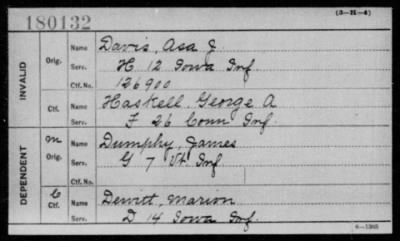 180132
(3-H-4)
INVALID
Orig.
Name Davis, Asa J.
Serv. H 12 Iowa Inf.
Ctf. No. 126900
Ctf.
Name Haskell, George A
Serv. F 26 Conn Inf.
DEPENDENT
On
Orig.
Name Dumphy, James
Serv. G 7 Vt. Inf
Ctf. No.
C
Ctf.
Name Dewitt, Marion
Serv. D 14 Iowa Inf.